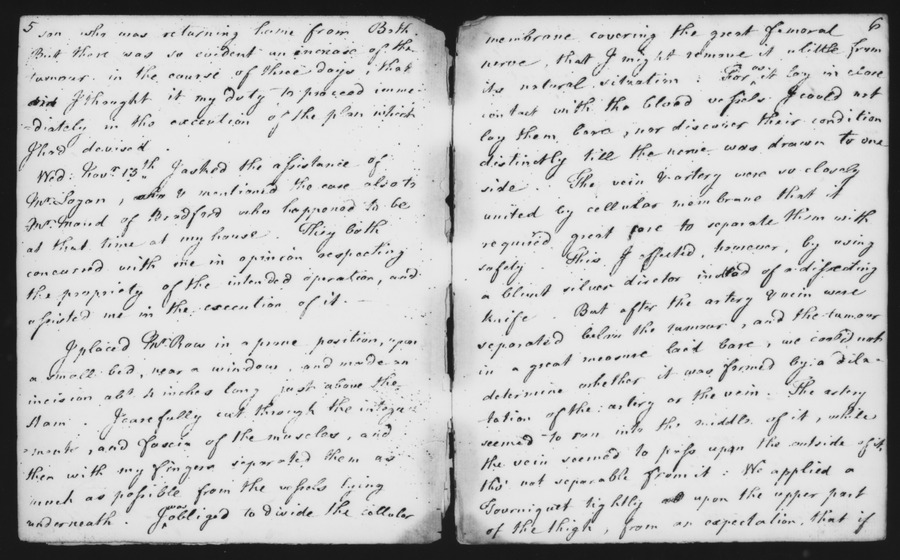 5
son who was returning home from Bath.
But there was so evident an increase of the
tumour in the course of three days, that
I thought it my duty to proceed imme-
-diately in the execution of the plan which
I had devised.
Wed: Novr. 13th. I asked the assistance of
Mr. Logan, & mentioned the case also to
Mr. Maud of Bradford who happened to be
at that time at my house. They both
concurred with me in opinion respecting
the propriety of the intended operation, and
assisted me in the execution of it. —
I placed Mr. Raw in a prone position, upon
a small bed, near a window, and made an
incision abt. 4 inches long just above the
Ham. I carefully cut through the integu-
-ments, and fascia of the muscles, and
then with my fingers separated them as
much as possible from the vessels lying
underneath. I was obliged to divide the cellular
6
membrane covering the great femoral
nerve, that I might remove it a little from
its natural situation: For, as it lay in close
contact with the blood vessels, I could not
lay them bare, nor discover their condition
distinctly till the nerve was drawn to one
side. The vein & artery were so closely
united by cellular membrane that it
required great care to separate them with
safety. This I effected, however, by using
a blunt silver director instead of a dissecting
knife. But after the artery & vein were
separated below the tumour, and the tumour
in a great measure laid bare, we could not
determine whether it was formed by a dila-
tation of the artery or the vein. The artery
seemed to run into the middle of it, while
the vein seemed to pass upon the outside of it,
tho' not separable from it: We applied a
Tourniquet tightly upon the upper part
of the thigh, from an expectation, that if